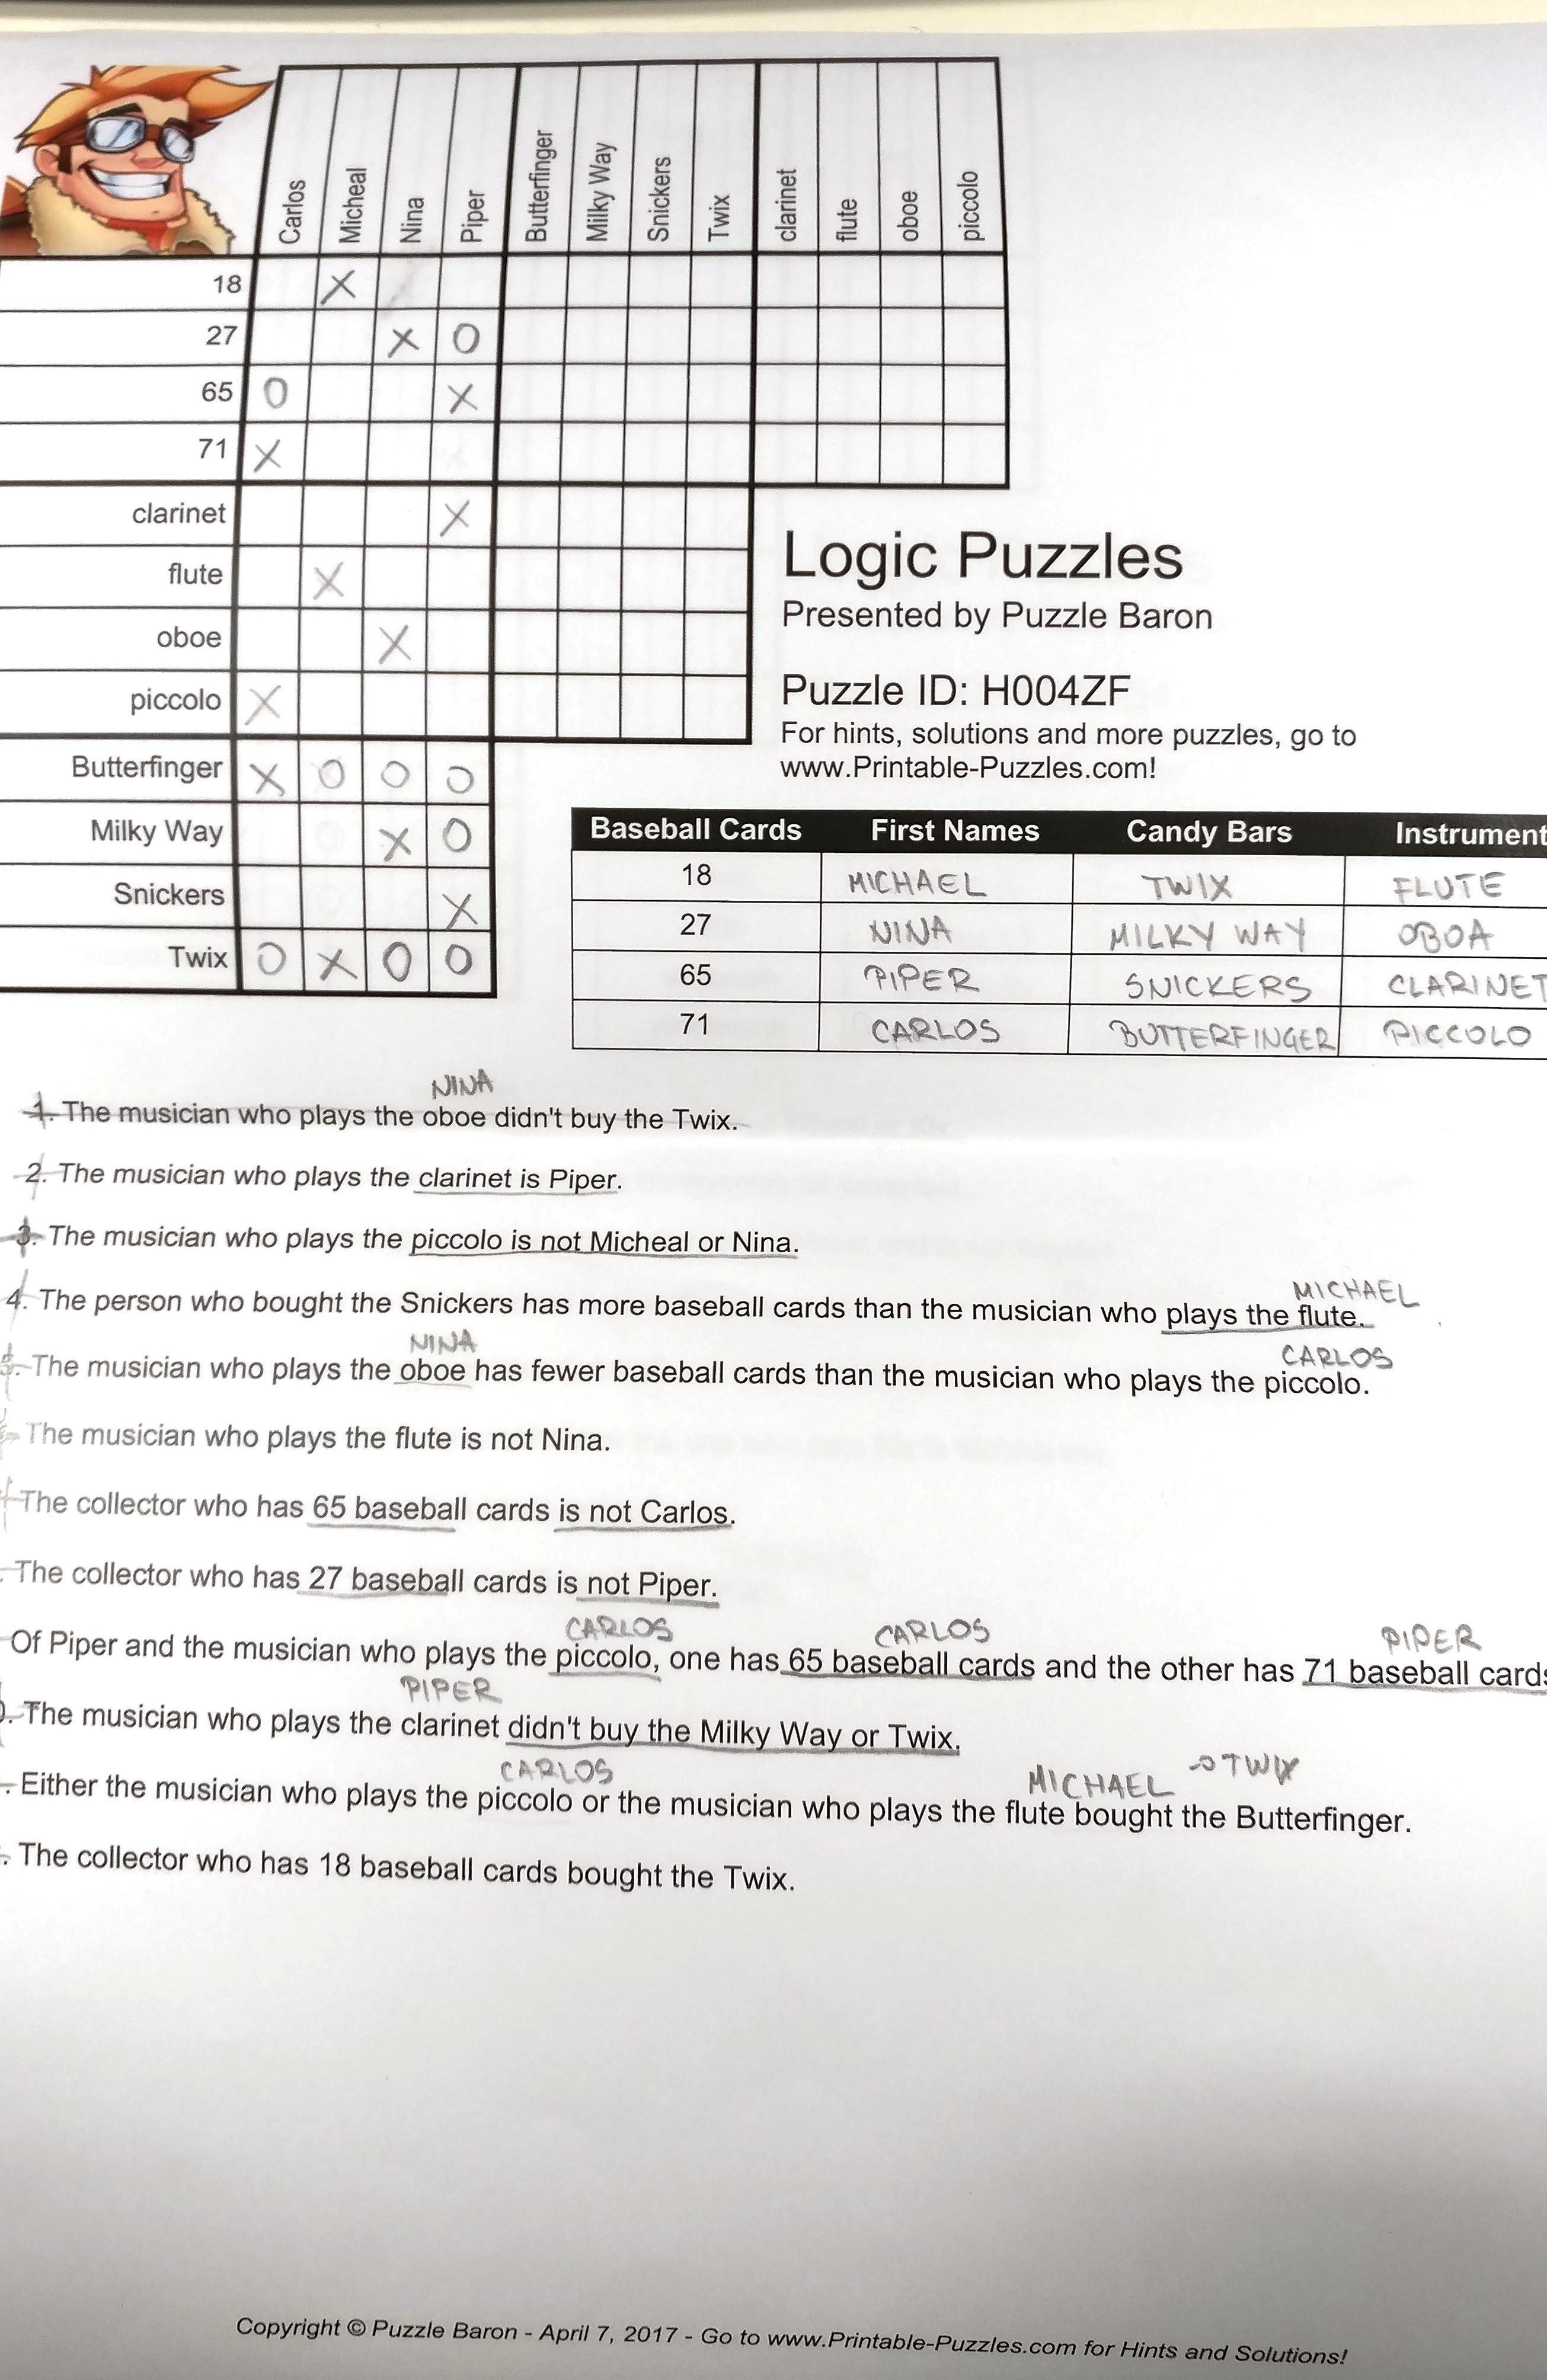 Carlos Micheal Nina Piper Butterfinger Milky Way Snickers Twix clarinet flute oboe piccolo
18 X
27 X O
65 O X
71 X
clarinet X
flute X
oboe X
piccolo X
Butterfinger X O O O
Milky Way X O
Snickers X
Twix O X O O
Logic Puzzles
Presented by Puzzle Baron
Puzzle ID: H004ZF
For hints, solutions and more puzzles, go to
www.Printable-Puzzles.com!
Baseball Cards First Names Candy Bars Instrument
18 MICHAEL TWIX FLUTE
27 NINA MILKY WAY OBOA
65 PIPER SNICKERS CLARINET
71 CARLOS BUTTERFINGER PICCOLO
NINA
1. The musician who plays the oboe didn't buy the Twix.
2. The musician who plays the clarinet is Piper.
3. The musician who plays the piccolo is not Micheal or Nina.
MICHAEL
4. The person who bought the Snickers has more baseball cards than the musician who plays the flute.
NINA CARLOS
5. The musician who plays the oboe has fewer baseball cards than the musician who plays the piccolo.
The musician who plays the flute is not Nina.
The collector who has 65 baseball cards is not Carlos.
The collector who has 27 baseball cards is not Piper.
CARLOS CARLOS PIPER
Of Piper and the musician who plays the piccolo, one has 65 baseball cards and the other has 71 baseball cards
PIPER
. The musician who plays the clarinet didn't buy the Milky Way or Twix.
CARLOS MICHAEL → TWIX
. Either the musician who plays the piccolo or the musician who plays the flute bought the Butterfinger.
. The collector who has 18 baseball cards bought the Twix.
Copyright © Puzzle Baron - April 7, 2017 - Go to www.Printable-Puzzles.com for Hints and Solutions!